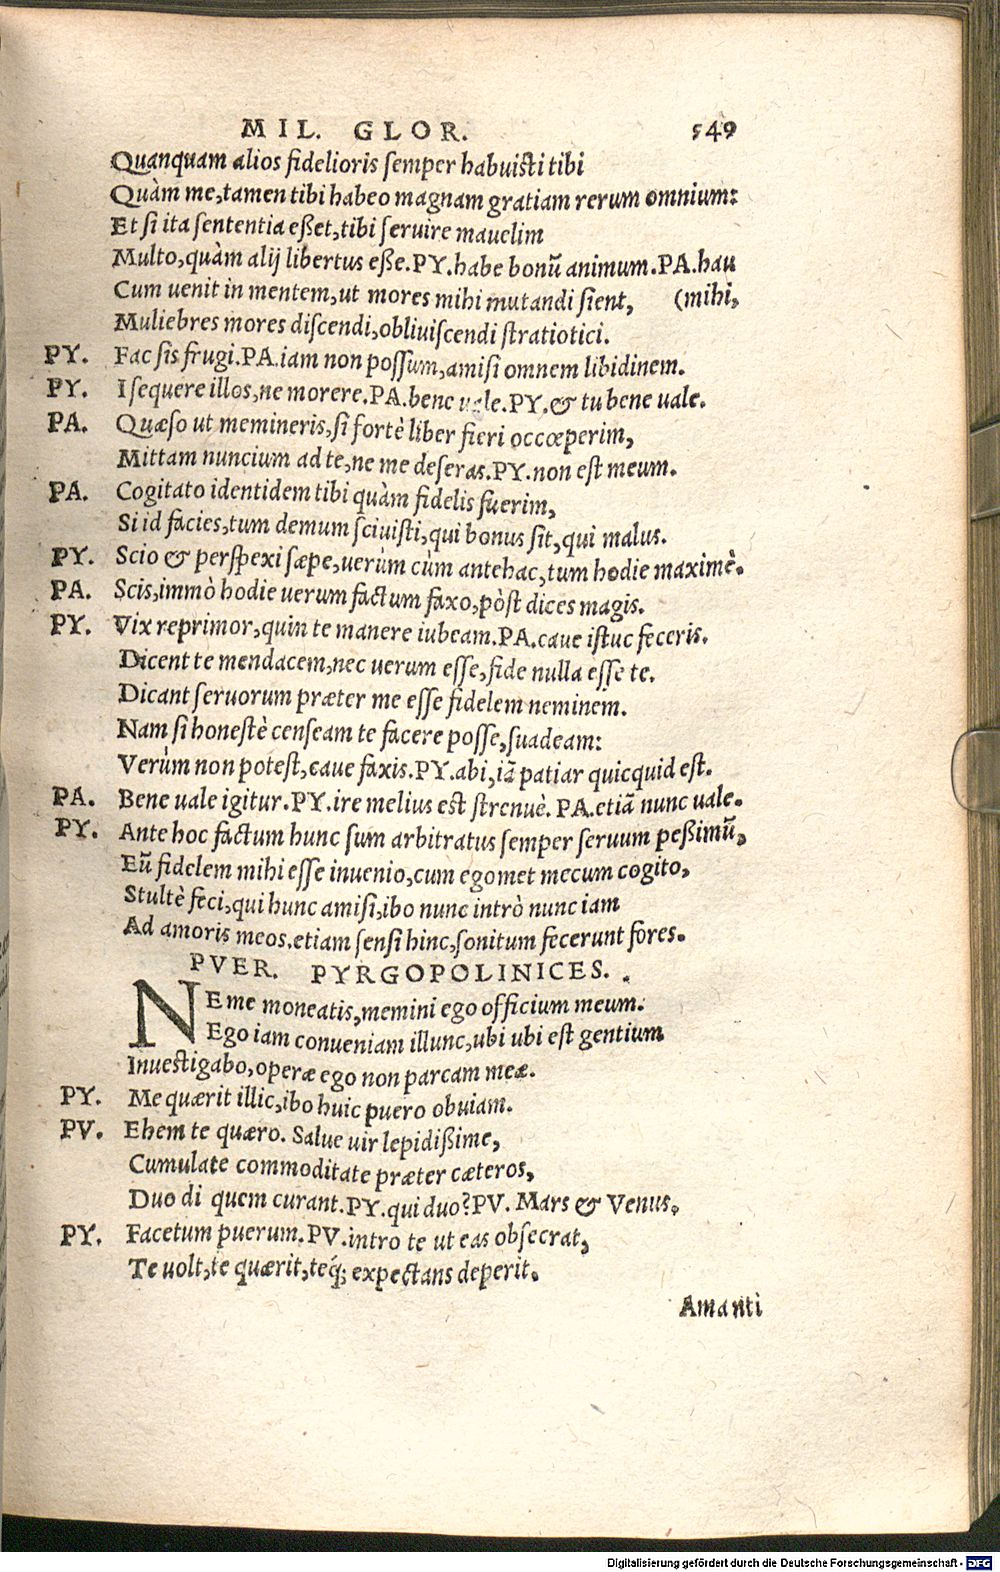 MIL. GLOR. 549
Quanquam alios fidelioris semper habuisti tibi
Quàm me, tamen tibi habeo magnam gratiam rerum omnium:
Et si ita sententia eßet, tibi seruire mauelim
Multo, quàm alij libertus eße. PY. habe bonū animum. PA. hau
Cum uenit in mentem, ut mores mihi mutandi sient, (mihi,
Muliebres mores discendi, obliuiscendi stratiotici.
PY. Fac sis frugi. PA. iam non possum, amisi omnem libidinem.
PY. I sequere illos, ne morere. PA. bene uale. PY. & tu bene uale.
PA. Quæso ut memineris, si fortè liber fieri occœperim,
Mittam nuncium ad te, ne me deseras. PY. non est meum.
PA. Cogitato identidem tibi quàm fidelis fuerim,
Si id facies, tum demum sciuisti, qui bonus sit, qui malus.
PY. Scio & perspexi sæpe, uerùm cùm antehac, tum hodie maximè.
PA. Scis, immò hodie uerum factum faxo, pòst dices magis.
PY. Vix reprimor, quin te manere iubeam. PA. caue istuc feceris.
Dicent te mendacem, nec uerum esse, fide nulla esse te.
Dicant seruorum præter me esse fidelem neminem.
Nam si honestè censeam te facere posse, suadeam:
Verùm non potest, caue faxis. PY. abi, iā patiar quicquid est.
PA. Bene uale igitur. PY. ire melius est strenuè. PA. etiā nunc uale.
PY. Ante hoc factum hunc sum arbitratus semper seruum peßimū,
Eū fidelem mihi esse inuenio, cum egomet mecum cogito,
Stultè feci, qui hunc amisi, ibo nunc intrò nunc iam
Ad amoris meos, etiam sensi hinc, sonitum fecerunt fores.
PVER. PYRGOPOLINICES.
NE me moneatis, memini ego officium meum:
Ego iam conueniam illunc, ubi ubi est gentium
Inuestigabo, operæ ego non parcam meæ.
PY. Me quærit illic, ibo huic puero obuiam.
PV. Ehem te quæro. Salue uir lepidißime,
Cumulate commoditate præter cæteros,
Duo di quem curant. PY. qui duo? PV. Mars & Venus.
PY. Facetum puerum. PV. intro te ut eas obsecrat,
Te uolt, te quærit, teq́; expectans deperit.
Amanti
Digitalisierung gefördert durch die Deutsche Forschungsgemeinschaft - DFG